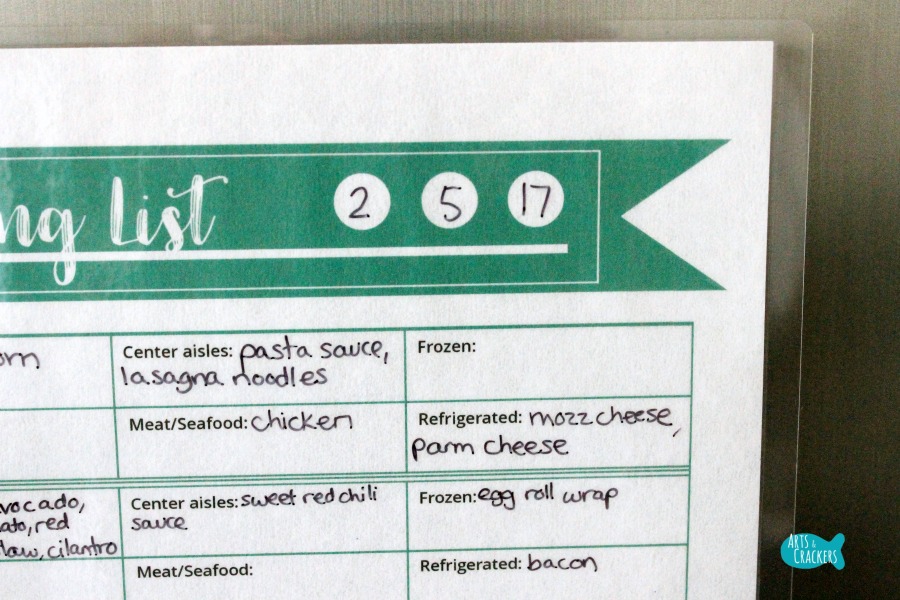 ng List 2 5 17
orn
Center aisles: pasta sauce,
lasagna noodles
Frozen:
Meat/Seafood: chicken
Refrigerated: mozz cheese,
parm cheese
vocado,
ato, red
law, cilantro
Center aisles: sweet red chili
sauce
Frozen: egg roll wrap
Meat/Seafood:
Refrigerated: bacon
ARTS &
CRACKERS